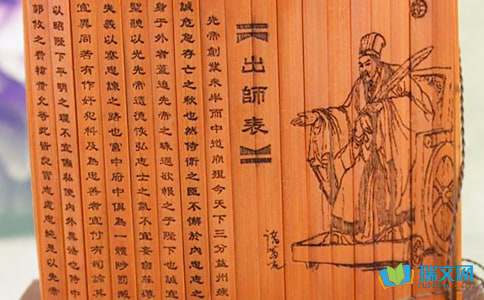 出師表
先帝創業未半而中道崩殂今天下三分益州疲
誠危急存亡之秋也然侍衛之臣不懈於內忠志之
身于外者蓋追先帝之殊遇欲報之于陛下也誠宜
聖聽以光先帝遺德恢弘志士之氣不宜妄自菲薄
失義以塞忠諫之路也宮中府中俱為一體陟罰臧
宜異同若有作奸犯科及為忠善者宜付有司論其
以昭陛下平明之理不宜偏私使內外異法也侍中
郭攸之費禕董允等此皆良實志慮忠純是以先帝